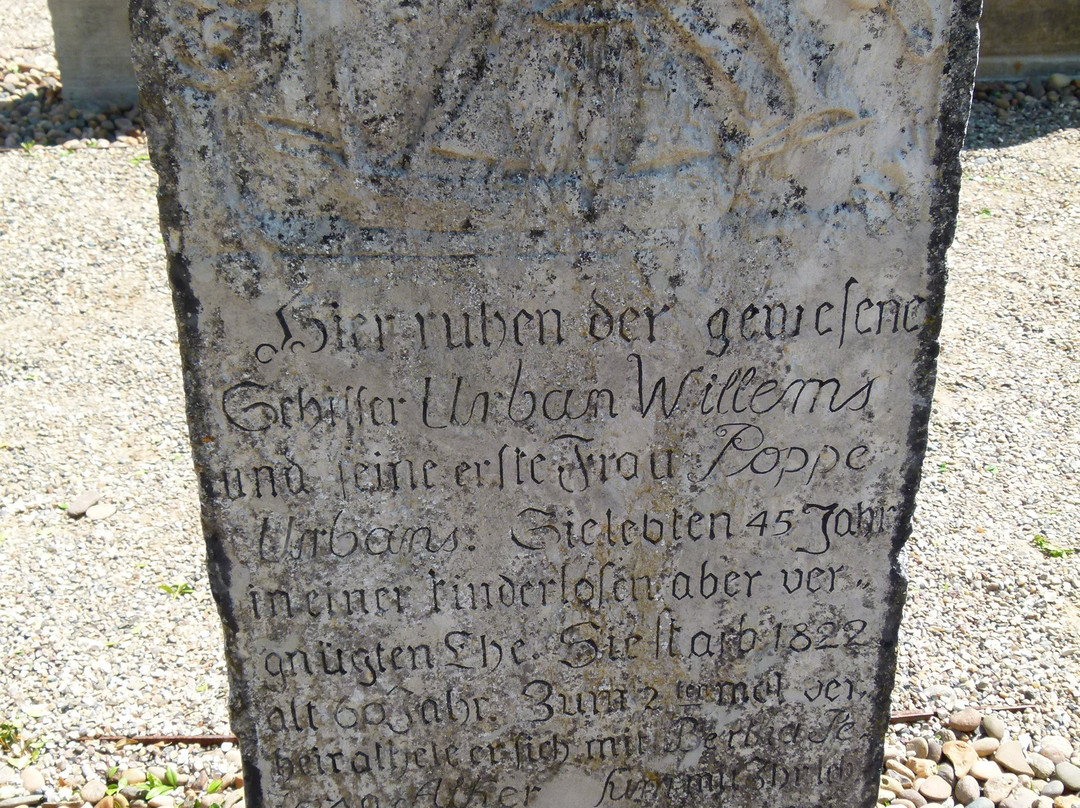 Hier ruhen der gewesene
Schiffer Urban Willems
und seine erste Frau Poppe
Urbans. Sie lebten 45 Jahr
in einer kinderlosen aber ver„
gnügten Ehe. Sie starb 1822
alt 60 Jahr. Zum 2ten mal ver„
heirathete er sich mit
mit Ihr leb